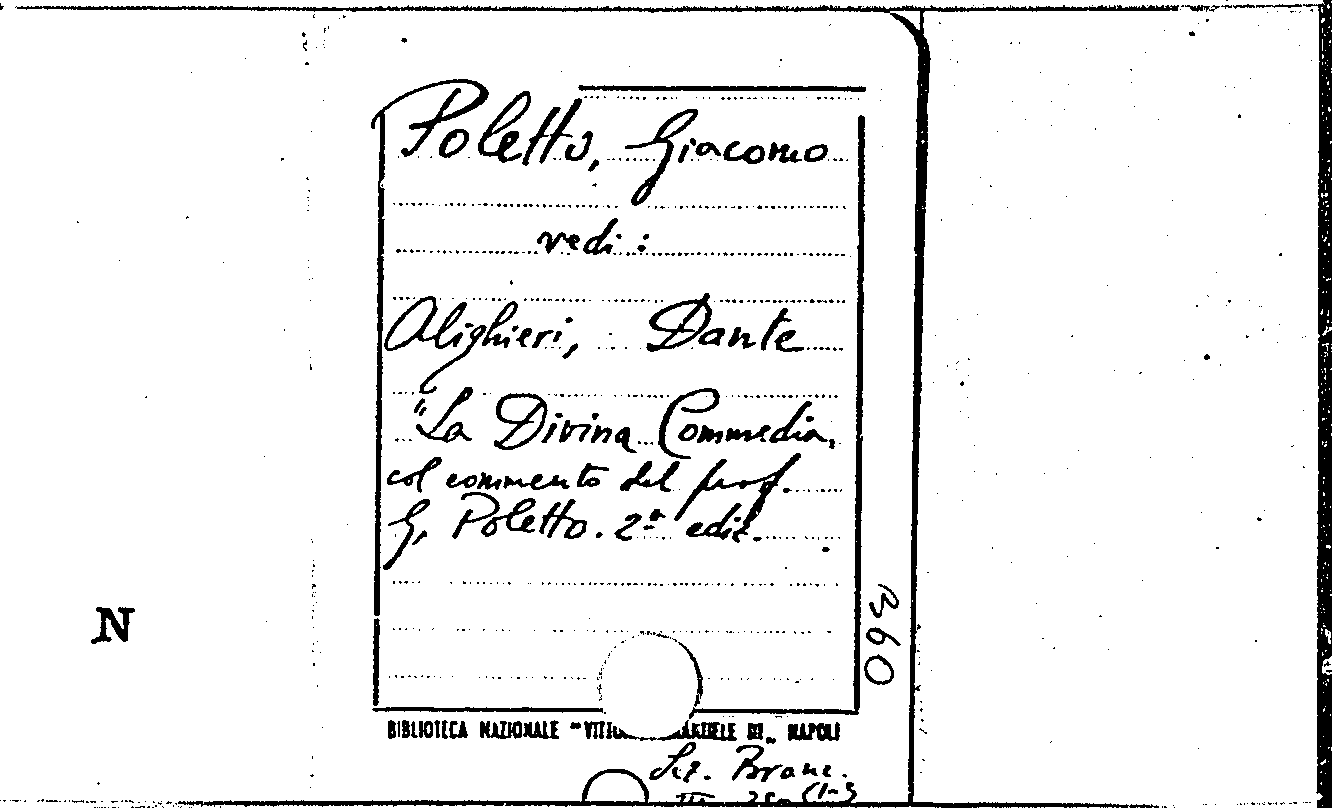 Poletto, Giacomo
vedi:
Alighieri, Dante
"La Divina Commedia,
col commento del prof.
G. Poletto. 2ª ediz.
360
N
BIBLIOTECA NAZIONALE "VITTO ANUELE III„ NAPOLI
Sez. Branc.